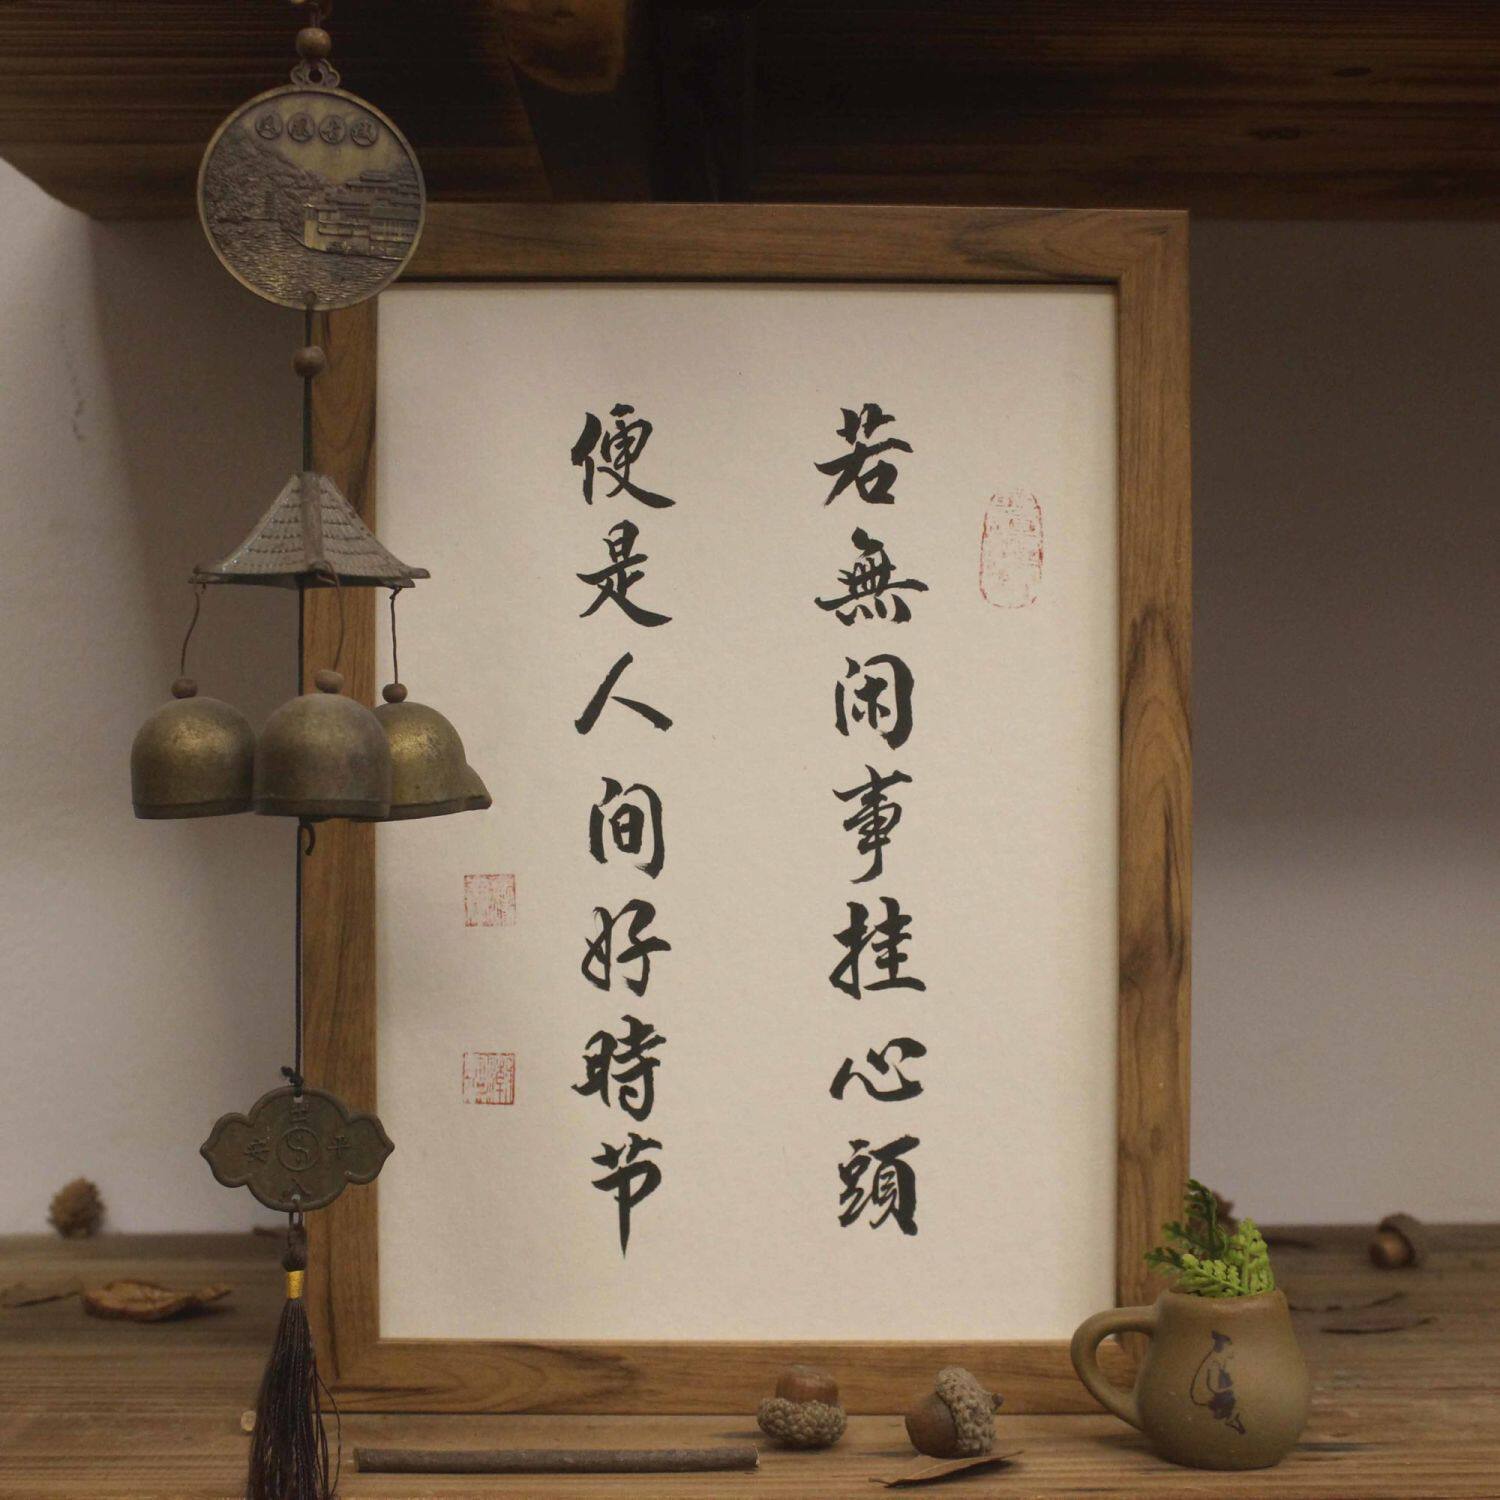 若無闲事挂心頭
便是人间好時节
凤凰古城
出入平安